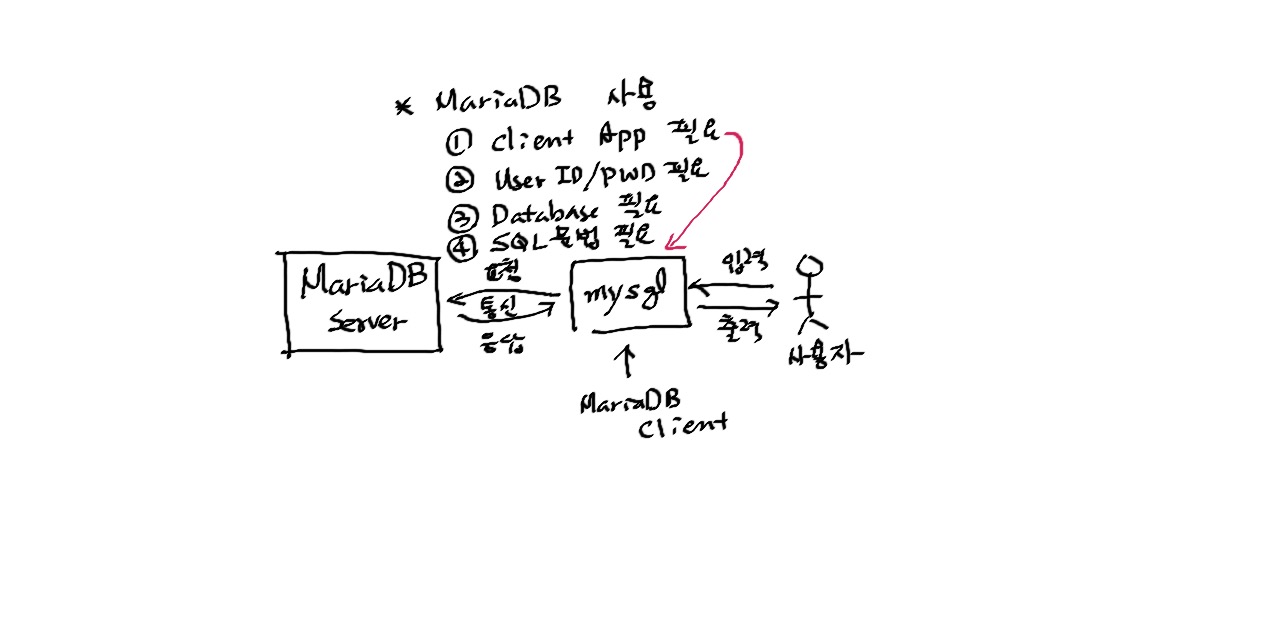 * MariaDB 사용
① Client App 필요
② User ID/PWD 필요
③ Database 필요
④ SQL 문법 필요
MariaDB
Server
요청
통신
응답
mysql
입력
출력
사용자
MariaDB
Client